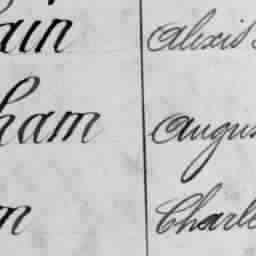 ain Alexis
ham Augus
n Charle